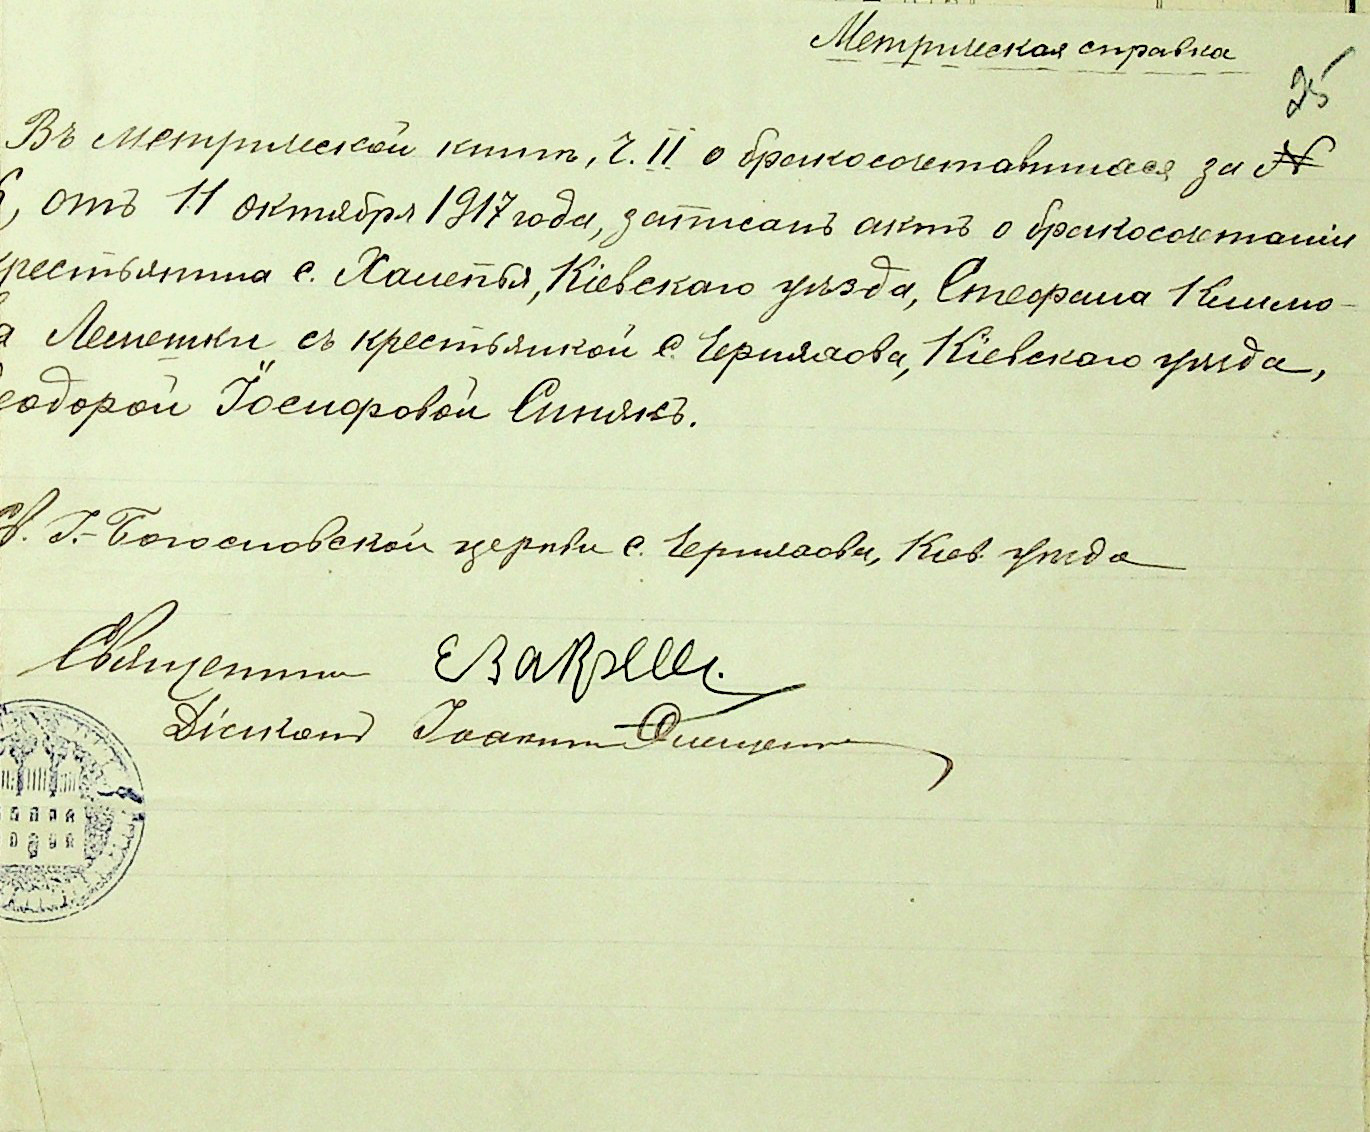 Метрическая справка
25
Въ метрической книгѣ, ч. II о бракосочетавшихся за №
, отъ 11 октября 1917 года, записанъ актъ о бракосочетаніи
крестьянина с. Халепья, Кіевскаго уѣзда, Стефана Климо-
ва Лемешки съ крестьянкой с. Черняхова, Кіевскаго уѣзда,
еодорой Іосифовой Синякъ.
Св. І.-Богословской церкви с. Черняхова, Кіев. уѣзда
Священникъ
Діаконъ Іоаннъ